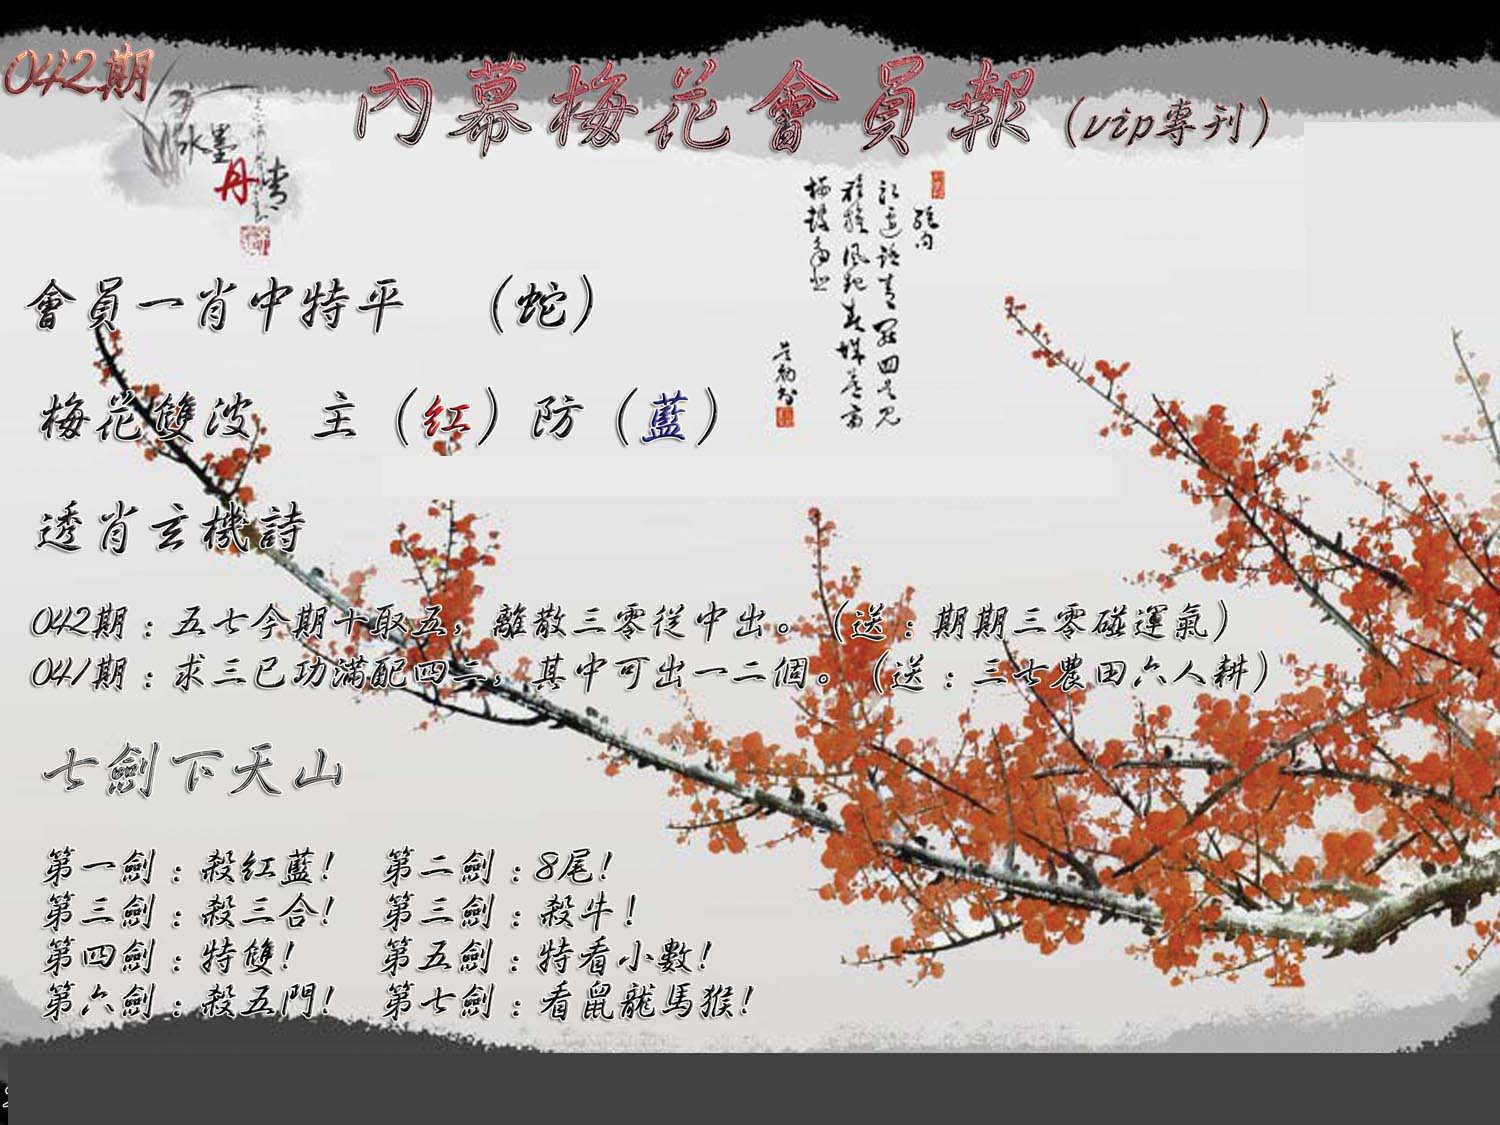 042期
內幕梅花會員報（vip專刊）
水墨
丹青
會員一肖中特平 （蛇）
梅花雙波 主（紅）防（藍）
透肖玄機詩
042期：五七今期十取五，離散三零從中出。（送：期期三零碰運氣）
041期：求三已功滿配四二，其中可出一二個。（送：三七農田六人耕）
七劍下天山
第一劍：殺紅藍！ 第二劍：8尾！
第三劍：殺三合！ 第三劍：殺牛！
第四劍：特雙！ 第五劍：特看小數！
第六劍：殺五門！ 第七劍：看鼠龍馬猴！